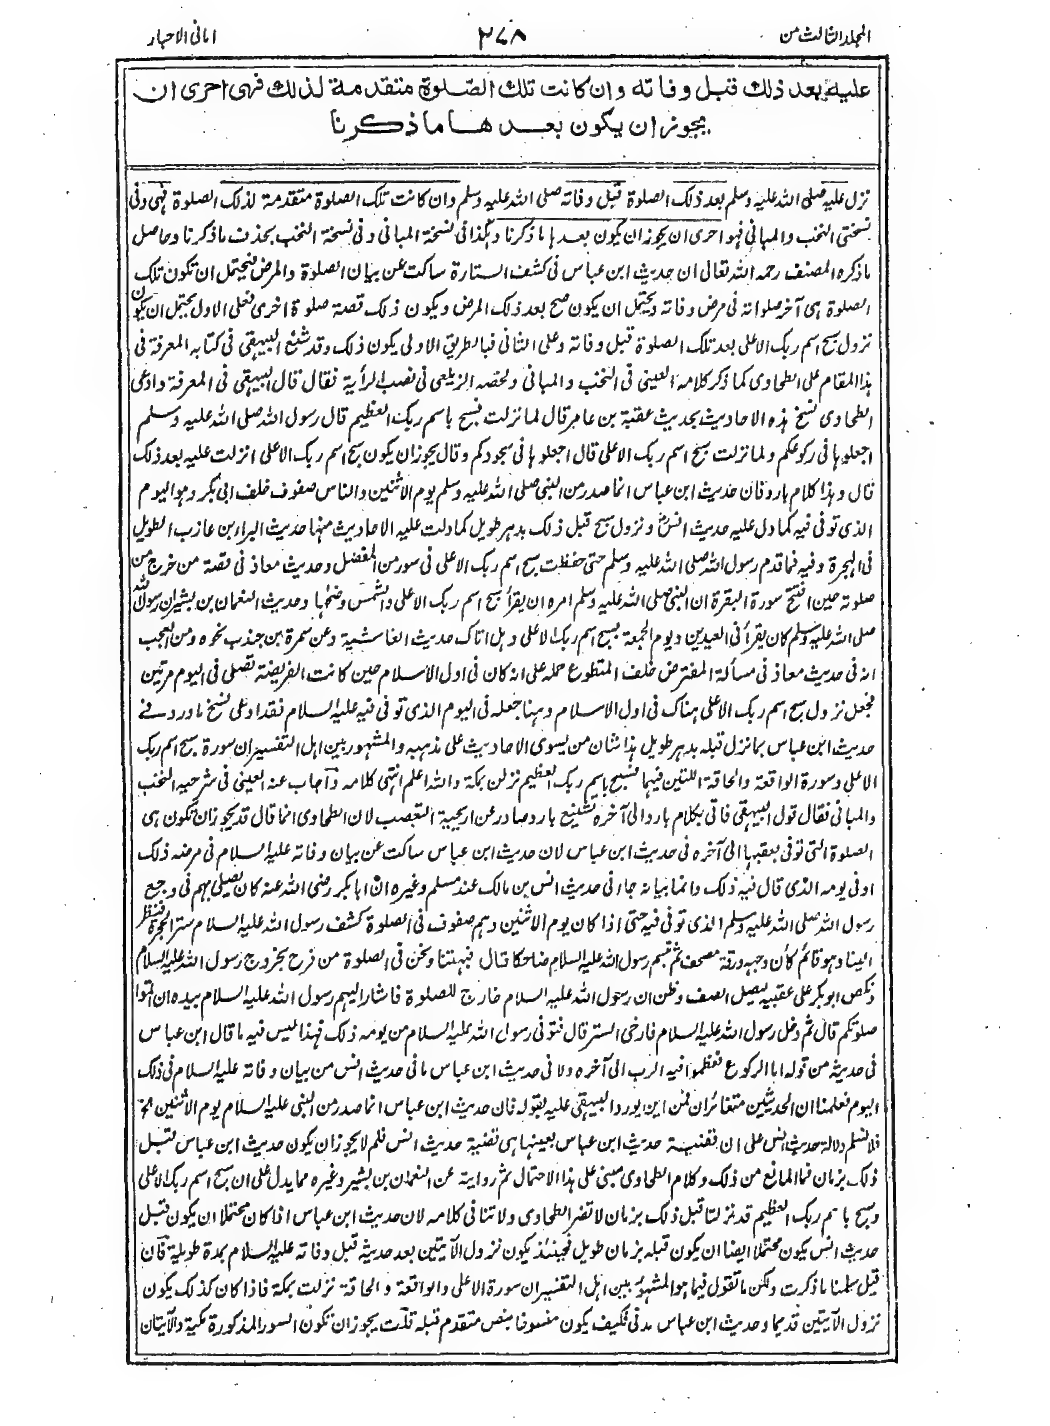 المجلد الثالث من
٣٤٨
امانی الاحبار
عليه بعد ذلك قبل وفاته وان كانت تلك الصلوة متقدمة لذلك فهى احرى ان
يجوز ان يكون بعدها ما ذكرنا
نزل عليه صلى الله عليه وسلم بعد ذلك الصلوة قبل وفاته صلى الله عليه وسلم وان كانت تلك الصلوة متقدمة لذلك الصلوة فهى وفى
نسختى النخب والمبانى فهو احرى ان يجوز ان يكون بعدها ما ذكرنا وهكذا فى نسخة المبانى وفى نسخة النخب بحذف ما ذكرنا وحاصل
ما ذكره المصنف رحمه الله تعالى ان حديث ابن عباس فى كشف الستارة ساكت عن بيان الصلوة والمرض فيحتمل ان تكون تلك
الصلوة هى آخر صلواته فى مرض وفاته ويحتمل ان يكون صح بعد ذلك المرض ويكون ذلك قصة صلوة اخرى فعلى الاول يحتمل ان يكون
نزول سبح اسم ربك الاعلى بعد تلك الصلوة قبل وفاته وعلى الثانى فبالطريق الاولى يكون ذلك وقد شنع البيهقى فى كتابه المعرفة فى
هذا المقام على الطحاوى كما ذكر كلامه العينى فى النخب والمبانى ولخصه الزيلعى فى نصب الراية فقال قال البيهقى فى المعرفة وادعى
الطحاوى نسخ هذه الاحاديث بحديث عقبة بن عامر قال لما نزلت فسبح باسم ربك العظيم قال رسول الله صلى الله عليه وسلم
اجعلوها فى ركوعكم ولما نزلت سبح اسم ربك الاعلى قال اجعلوها فى سجودكم وقال يجوز ان يكون سبح اسم ربك الاعلى انزلت عليه بعد ذلك
قال وهذا كلام بارد فان حديث ابن عباس انما صدر من النبى صلى الله عليه وسلم يوم الاثنين والناس صفوف خلف ابى بكر وهو اليوم
الذى توفى فيه كما دل عليه حديث انس ونزول سبح قبل ذلك بدهر طويل كما دلت عليه الاحاديث منها حديث البراء بن عازب الطويل
فى الهجرة وفيه فما قدم رسول الله صلى الله عليه وسلم حتى حفظت سبح اسم ربك الاعلى فى سور من المفصل وحديث معاذ فى قصة من خرج من
صلوته حين افتتح سورة البقرة ان النبى صلى الله عليه وسلم امره ان يقرأ سبح اسم ربك الاعلى والشمس وضحاها وحديث النعمان بن بشير ان رسول الله
صلى الله عليه وسلم كان يقرأ فى العيدين ويوم الجمعة بسبح اسم ربك الاعلى وهل اتاك حديث الغاشية وعن سمرة بن جندب نحوه ومن العجب
انه فى حديث معاذ فى مسألة المفترض خلف المتطوع حمله على انه كان فى اول الاسلام حين كانت الفريضة تصلى فى اليوم مرتين
فجعل نزول سبح اسم ربك الاعلى هناك فى اول الاسلام وهنا جعله فى اليوم الذى توفى فيه عليه السلام فقد ادعى نسخ ما ورد فى
حديث ابن عباس بما نزل قبله بدهر طويل هذا شان من يسوى الاحاديث على مذهبه والمشهور بين اهل التفسير ان سورة سبح اسم ربك
الاعلى وسورة الواقعة والحاقة اللتين فيهما فسبح باسم ربك العظيم نزلن بمكة والله اعلم انتهى كلامه واجاب عنه العينى فى شرحيه النخب
والمبانى فقال قول البيهقى فاتى بكلام بارد الى آخره تشنيع بارد صادر عن اريحية التعصب لان الطحاوى انما قال قد يجوز ان تكون هى
الصلوة التى توفى بعقبها الى آخره فى حديث ابن عباس لان حديث ابن عباس ساكت عن بيان وفاته عليه السلام فى مرضه ذلك
او فى يومه الذى قال فيه ذلك وانما بيانه جاء فى حديث انس بن مالك عند مسلم وغيره ان ابا بكر رضى الله عنه كان يصلى بهم فى وجع
رسول الله صلى الله عليه وسلم الذى توفى فيه حتى اذا كان يوم الاثنين وهم صفوف فى الصلوة كشف رسول الله عليه السلام ستر الحجرة فنظر
الينا وهو قائم كأن وجهه ورقة مصحف ثم تبسم رسول الله عليه السلام ضاحكا قال فبهتنا ونحن فى الصلوة من فرح بخروج رسول الله عليه السلام
ونكص ابو بكر على عقبيه ليصل الصف وظن ان رسول الله عليه السلام خارج للصلوة فاشار اليهم رسول الله عليه السلام بيده ان اتموا
صلوتكم قال ثم دخل رسول الله عليه السلام فارخى الستر قال فتوفى رسول الله عليه السلام من يومه ذلك فهذا ليس فيه ما قال ابن عباس
فى حديثه من قوله اما الركوع فعظموا فيه الرب الى آخره ولا فى حديث ابن عباس ما فى حديث انس من بيان وفاته عليه السلام فى ذلك
اليوم فعلمنا ان الحديثين متغائران فمن اين يورد البيهقى عليه بقوله فان حديث ابن عباس انما صدر من النبى عليه السلام يوم الاثنين الخ
فلا نسلم دلالة حديث انس على ان قضية حديث ابن عباس بعينها هى قضية حديث انس فلم لا يجوز ان يكون حديث ابن عباس قبل
ذلك بزمان فما المانع من ذلك وكلام الطحاوى مبنى على هذا الاحتمال ثم رواية عن النعمان بن بشير وغيره مما يدل على ان سبح اسم ربك الاعلى
وسبح باسم ربك العظيم قد نزلتا قبل ذلك بزمان لا تضر الطحاوى ولا تنافى كلامه لان حديث ابن عباس اذا كان محتملا ان يكون قبل
حديث انس يكون محتملا ايضا ان يكون قبله بزمان طويل فحينئذ يكون نزول الآيتين بعد حديثه قبل وفاته عليه السلام بمدة طويلة فان
قيل سلمنا ما ذكرت ولكن ما تقول فيما هو المشهور بين اهل التفسير ان سورة الاعلى والواقعة والحاقة نزلت بمكة فاذا كان كذلك يكون
نزول الآيتين قديما وحديث ابن عباس مدنى فكيف يكون منسوخا بنص متقدم قبله قلت يجوز ان تكون السور المذكورة مكية والآيتان